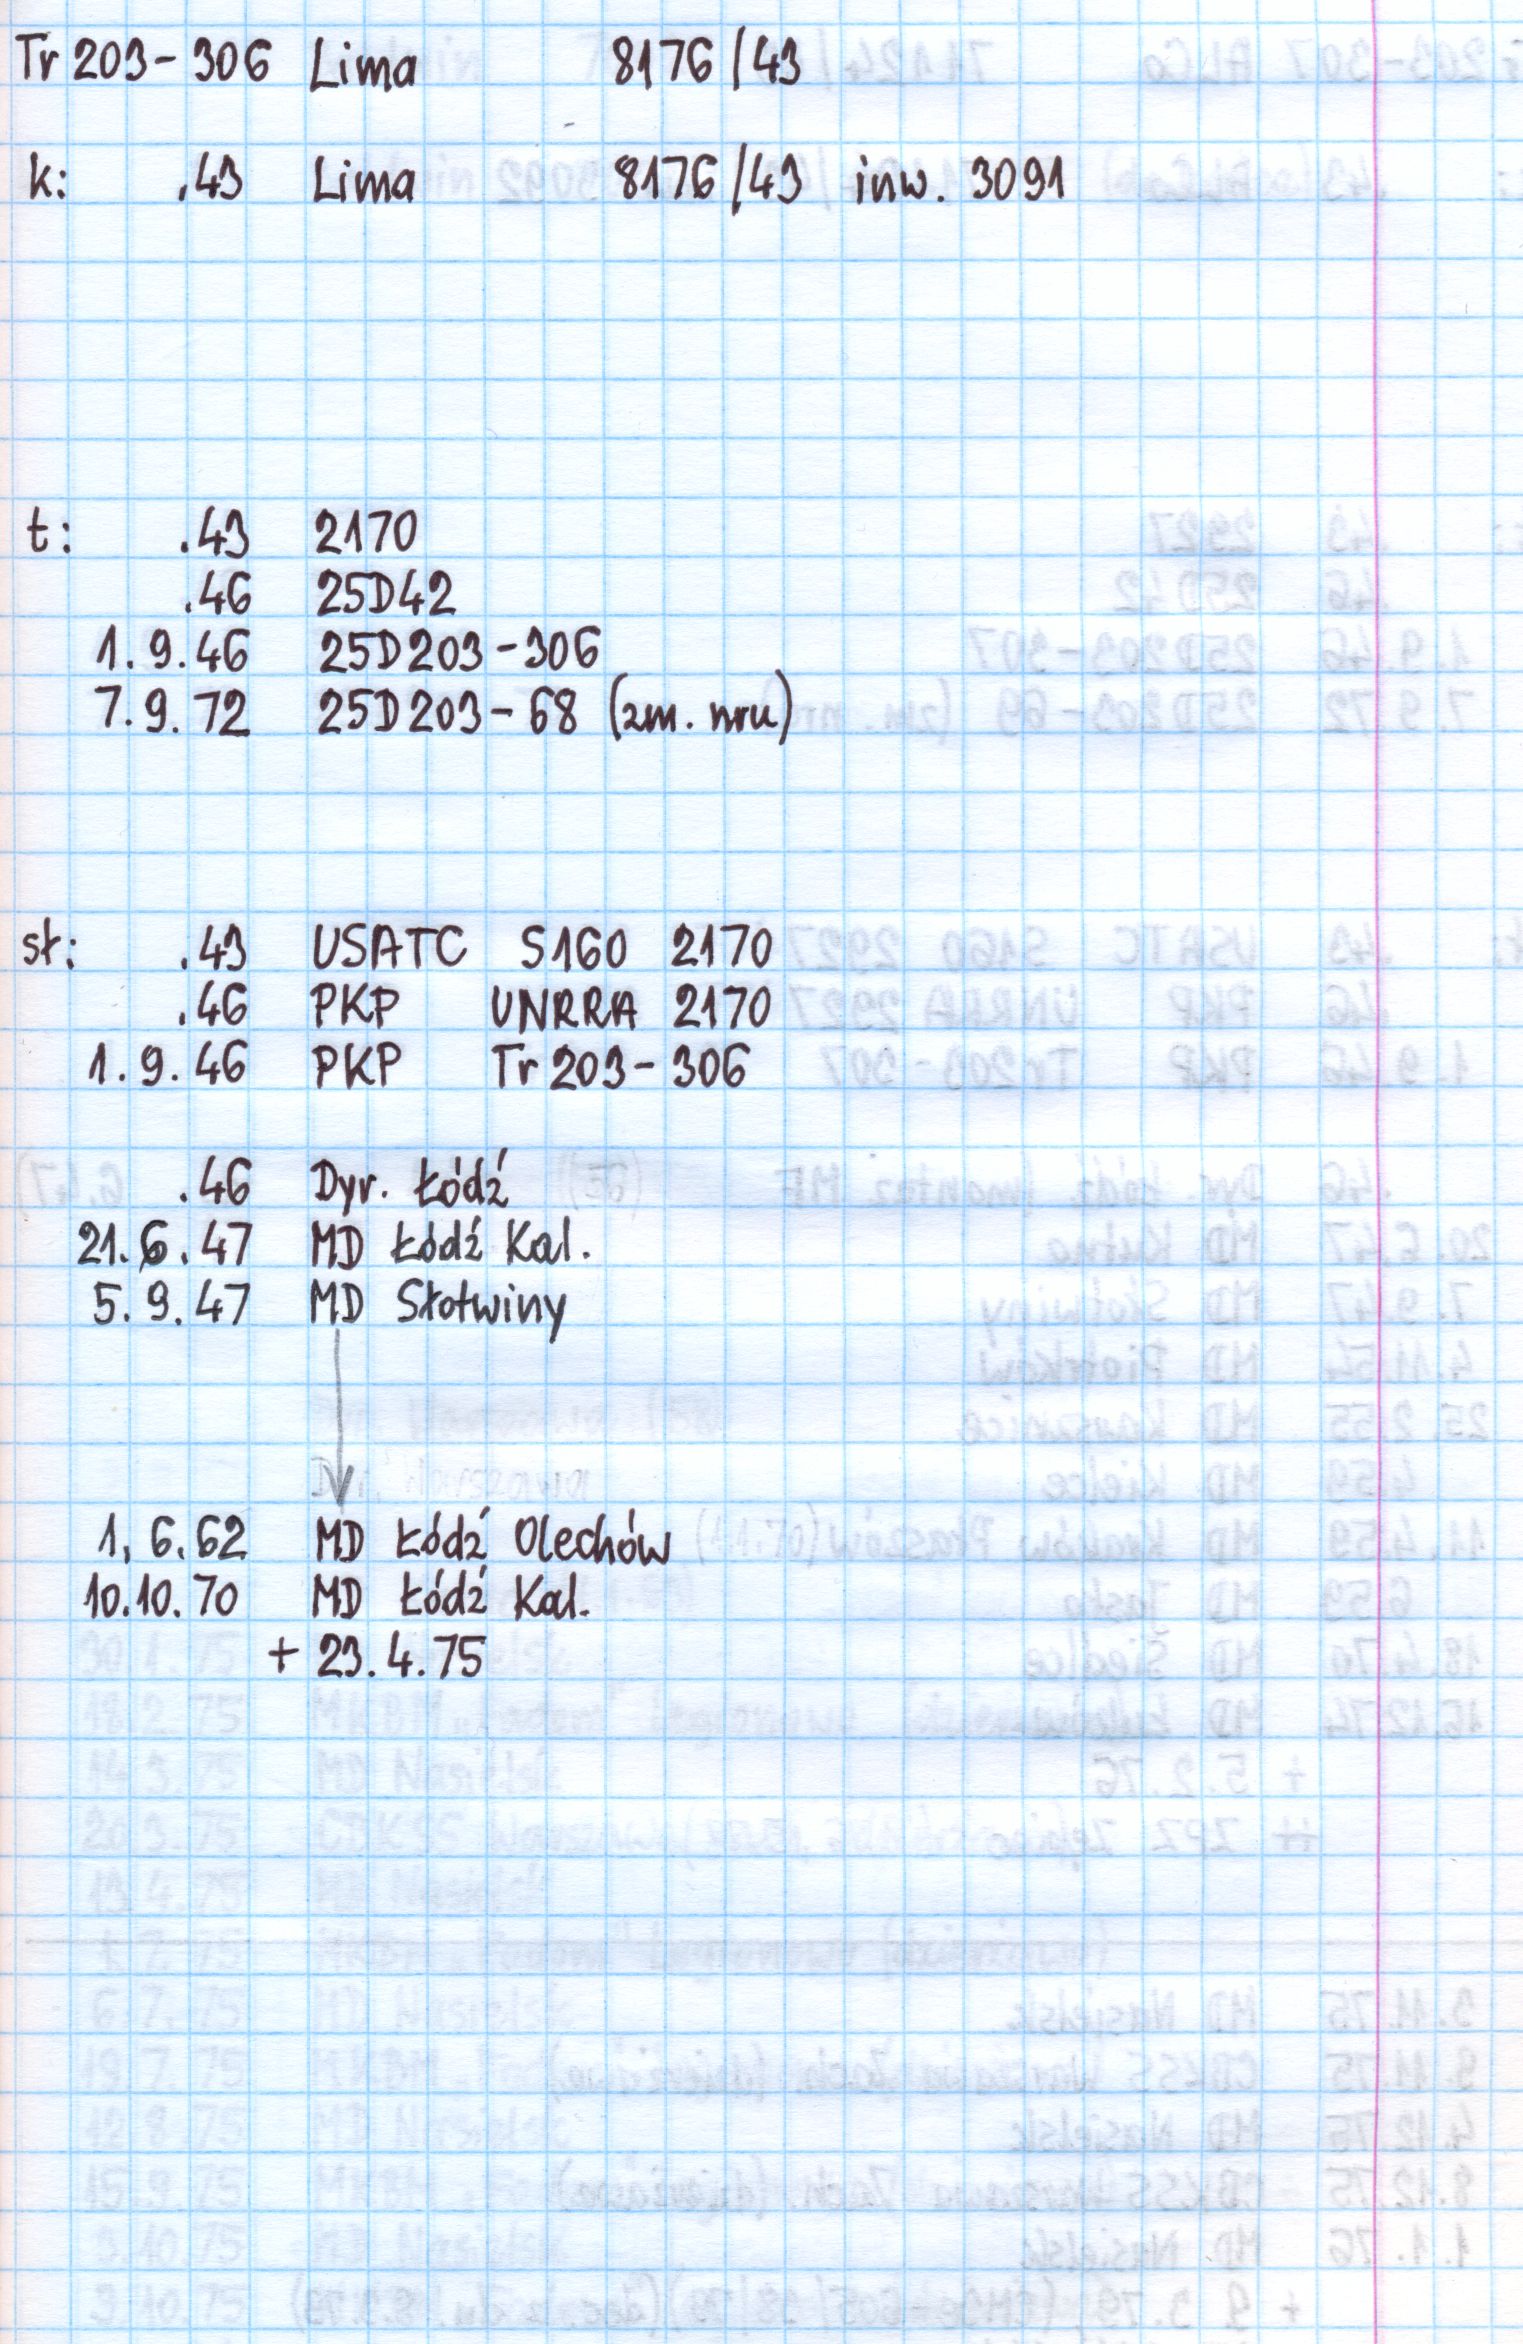 Tr 203-306 Lima 8176/43
k: .43 Lima 8176/43 inw. 3091
t: .43 2170
.46 25D42
1.9.46 25D203-306
7.9.72 25D203-68 (zm. nru)
sł: .43 USATC S160 2170
.46 PKP UNRRA 2170
1.9.46 PKP Tr 203-306
.46 Dyr. Łódź
21.6.47 MD Łódź Kal.
5.9.47 MD Słotwiny
1.6.62 MD Łódź Olechów
10.10.70 MD Łódź Kal.
+ 23.4.75